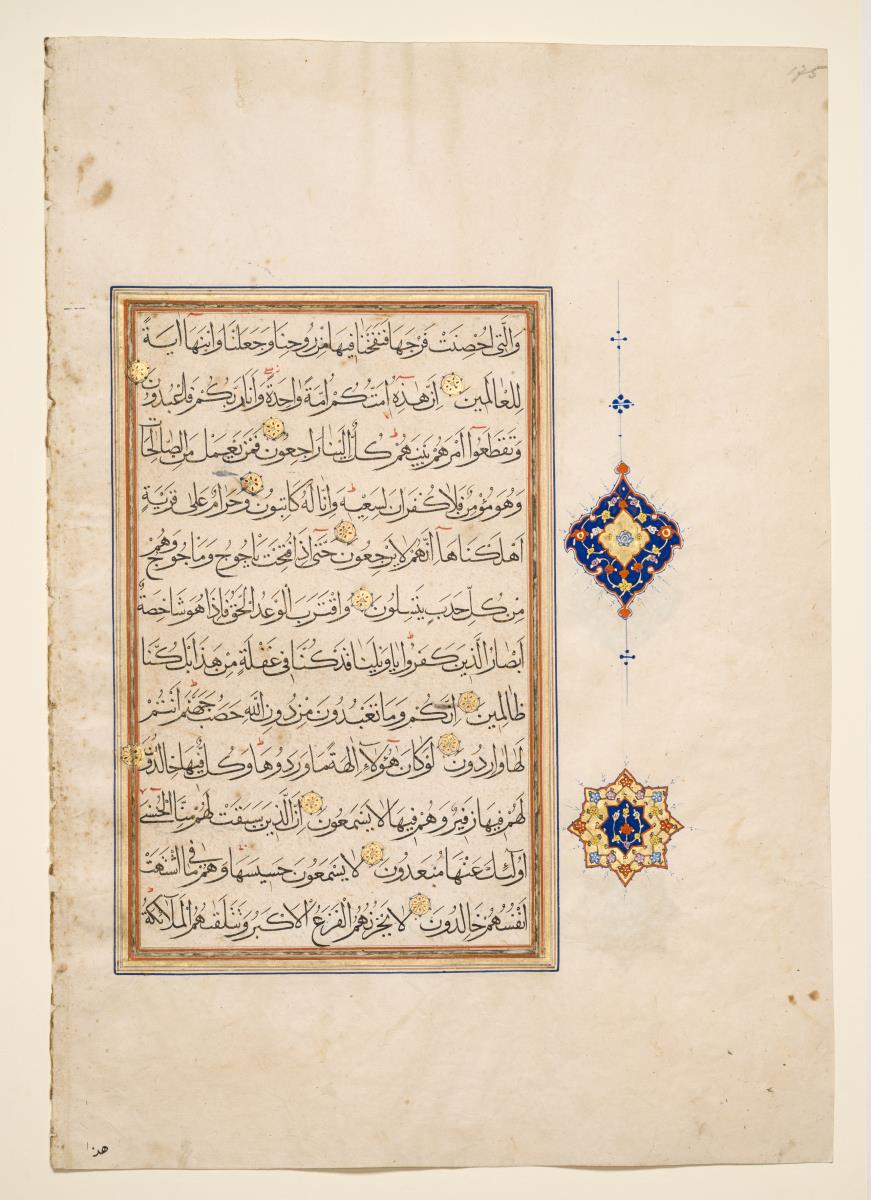 وَالَّتِى اَحْصَنَتْ فَرْجَهَا فَنَفَخْنَا فِيهَا مِنْ رُوحِنَا وَجَعَلْنَا وَابْنَهَا ايَةً
لِلْعَالَمِينَ اِنَّ هٰذِهِ اُمَّتُكُمْ اُمَّةً وَاحِدَةً وَاَنَا رَبُّكُمْ فَاعْبُدُونِ
وَتَقَطَّعُوا اَمْرَهُمْ بَيْنَهُمْ كُلٌّ اِلَيْنَا رَاجِعُونَ فَمَنْ يَعْمَلْ مِنَ الصَّالِحَاتِ
وَهُوَ مُؤْمِنٌ فَلَا كُفْرَانَ لِسَعْيِهِ وَاِنَّا لَهُ كَاتِبُونَ وَحَرَامٌ عَلَى قَرْيَةٍ
اَهْلَكْنَاهَا اَنَّهُمْ لَا يَرْجِعُونَ حَتَّى اِذَا فُتِحَتْ يَاْجُوجُ وَمَاْجُوجُ وَهُمْ
مِنْ كُلِّ حَدَبٍ يَنْسِلُونَ وَاقْتَرَبَ الْوَعْدُ الْحَقُّ فَاِذَا هُوَ شَاخِصَةٌ
اَبْصَارُ الَّذِينَ كَفَرُوا يَا وَيْلَنَا قَدْ كُنَّا فِى غَفْلَةٍ مِنْ هَذَا بَلْ كُنَّا
ظَالِمِينَ اِنَّكُمْ وَمَا تَعْبُدُونَ مِنْ دُونِ اللّٰهِ حَصَبُ جَهَنَّمَ اَنْتُمْ
لَهَا وَارِدُونَ لَوْ كَانَ هٰؤُلَاءِ اٰلِهَةً مَا وَرَدُوهَا وَكُلٌّ فِيهَا خَالِدُونَ
لَهُمْ فِيهَا زَفِيرٌ وَهُمْ فِيهَا لَا يَسْمَعُونَ اِنَّ الَّذِينَ سَبَقَتْ لَهُمْ مِنَّا الْحُسْنَى
اُولٰئِكَ عَنْهَا مُبْعَدُونَ لَا يَسْمَعُونَ حَسِيسَهَا وَهُمْ فِى مَا اشْتَهَتْ
اَنْفُسُهُمْ خَالِدُونَ لَا يَحْزُنُهُمُ الْفَزَعُ الْاَكْبَرُ وَتَتَلَقّٰهُمُ الْمَلَائِكَةُ
هذا